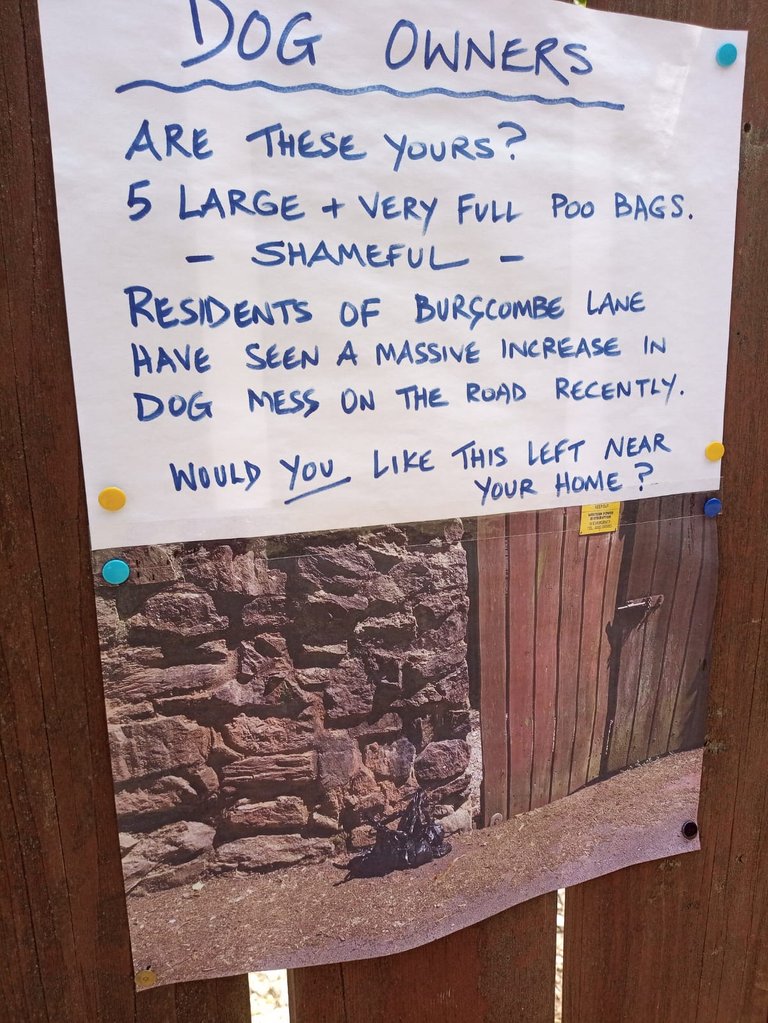 DOG OWNERS
ARE THESE YOURS?
5 LARGE + VERY FULL POO BAGS.
- SHAMEFUL -
RESIDENTS OF BURSCOMBE LANE
HAVE SEEN A MASSIVE INCREASE IN
DOG MESS ON THE ROAD RECENTLY.
WOULD YOU LIKE THIS LEFT NEAR
YOUR HOME?